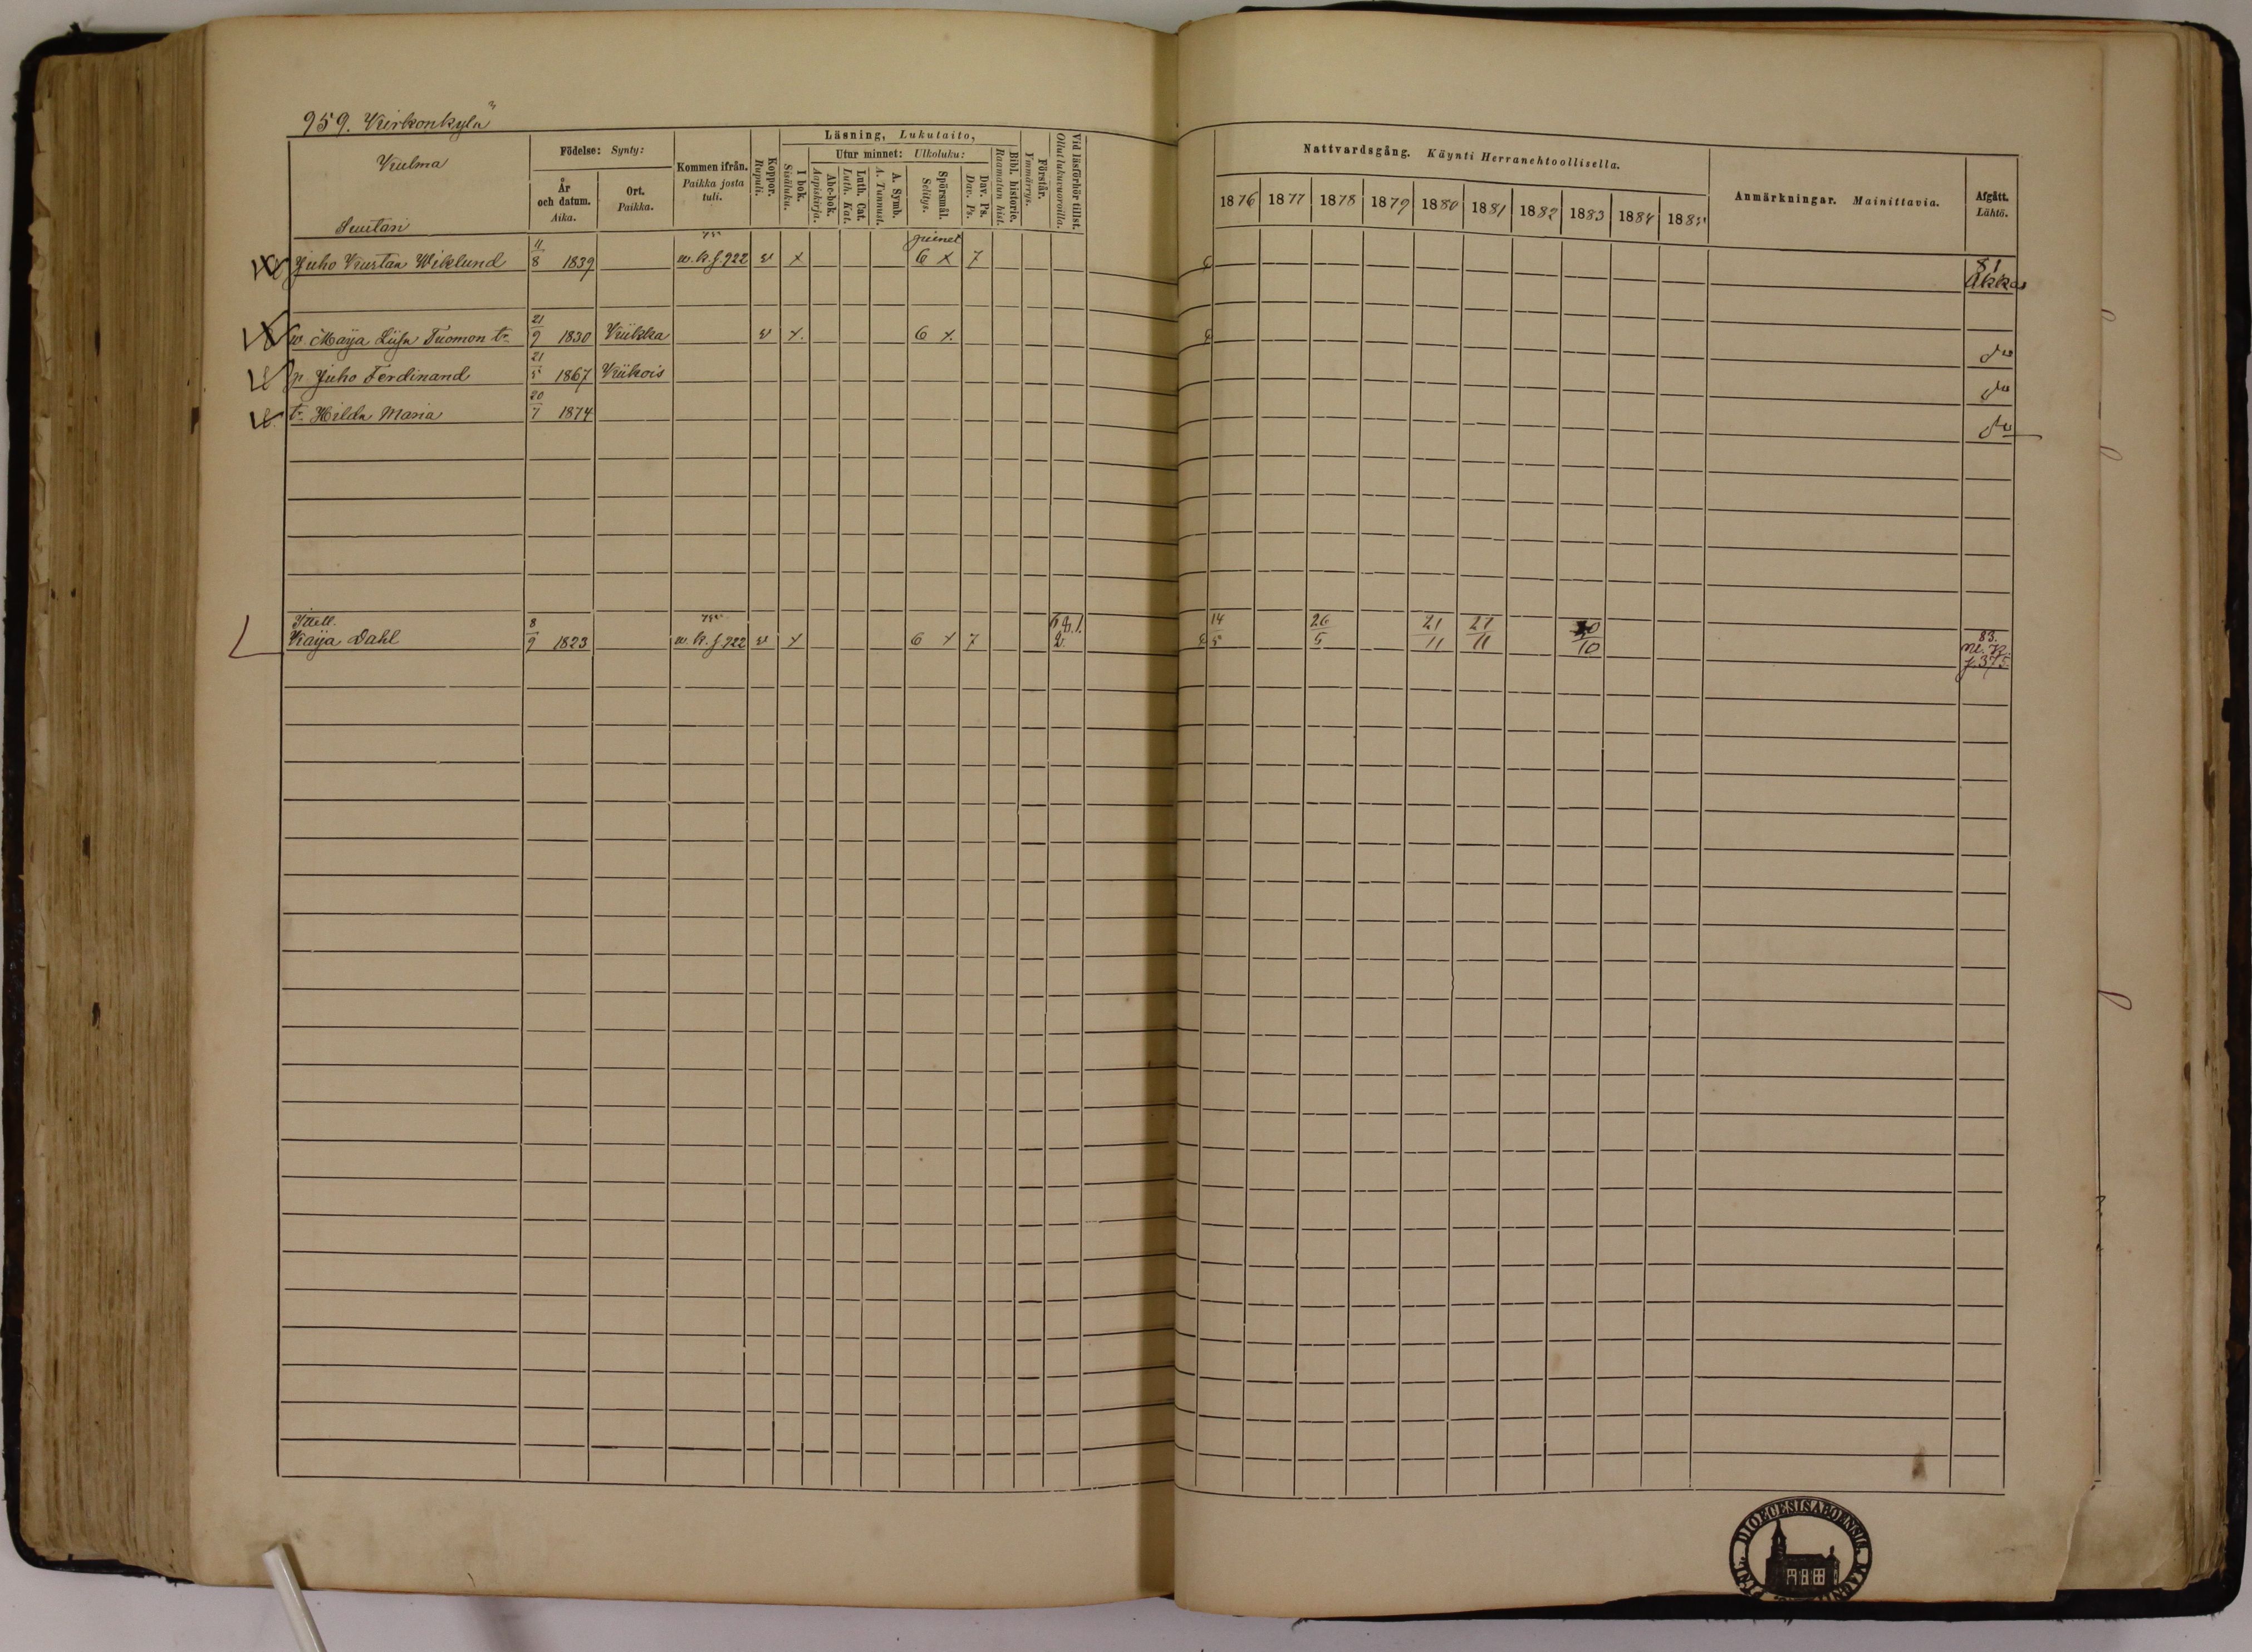 959. Kirkonkylä
Kulma
Suutari
Födelse: Synty:
År och datum. Aika.
Ort. Paikka.
Kommen ifrån. Paikka josta tuli.
Koppor. Rupuli.
Läsning, Lukutaito,
I bok. Sisäluku.
Utur minnet: Ulkoluku:
Abc-bok. Aapiskirja.
Luth. Cat. Luth. Kat.
A. Symb. A. Tunnust.
Spörsmål. Selitys.
Dav. Ps. Dav. Ps.
Bibl. historie. Raamatun hist.
Förstår. Ymmärrys.
Vid läsförhör tillst. Ollut lukuvuoroilla.
Nattvardsgång. Käynti Herranehtoollisella.
1876 1877 1878 1879 1880 1881 1882 1883 1884 1885
Anmärkningar. Mainittavia.
Afgått. Lähtö.
Juho Kustaa Wiklund 11/8 1839 w.k.f. 922 6 x 7 81 Akkas
w. Maija Liisa Tuomon t. 21/9 1830 Kiikka 6 x do
p. Juho Ferdinand 21/5 1867 Kiikois do
t. Hilda Maria 20/7 1874 do
Itell.
Kaija Dahl 8/9 1823 w.k.f. 922 x 6 x 7 14/5 26/5 21/11 27/11 10 83. p. 375
DIOECESIS ABOENSIS